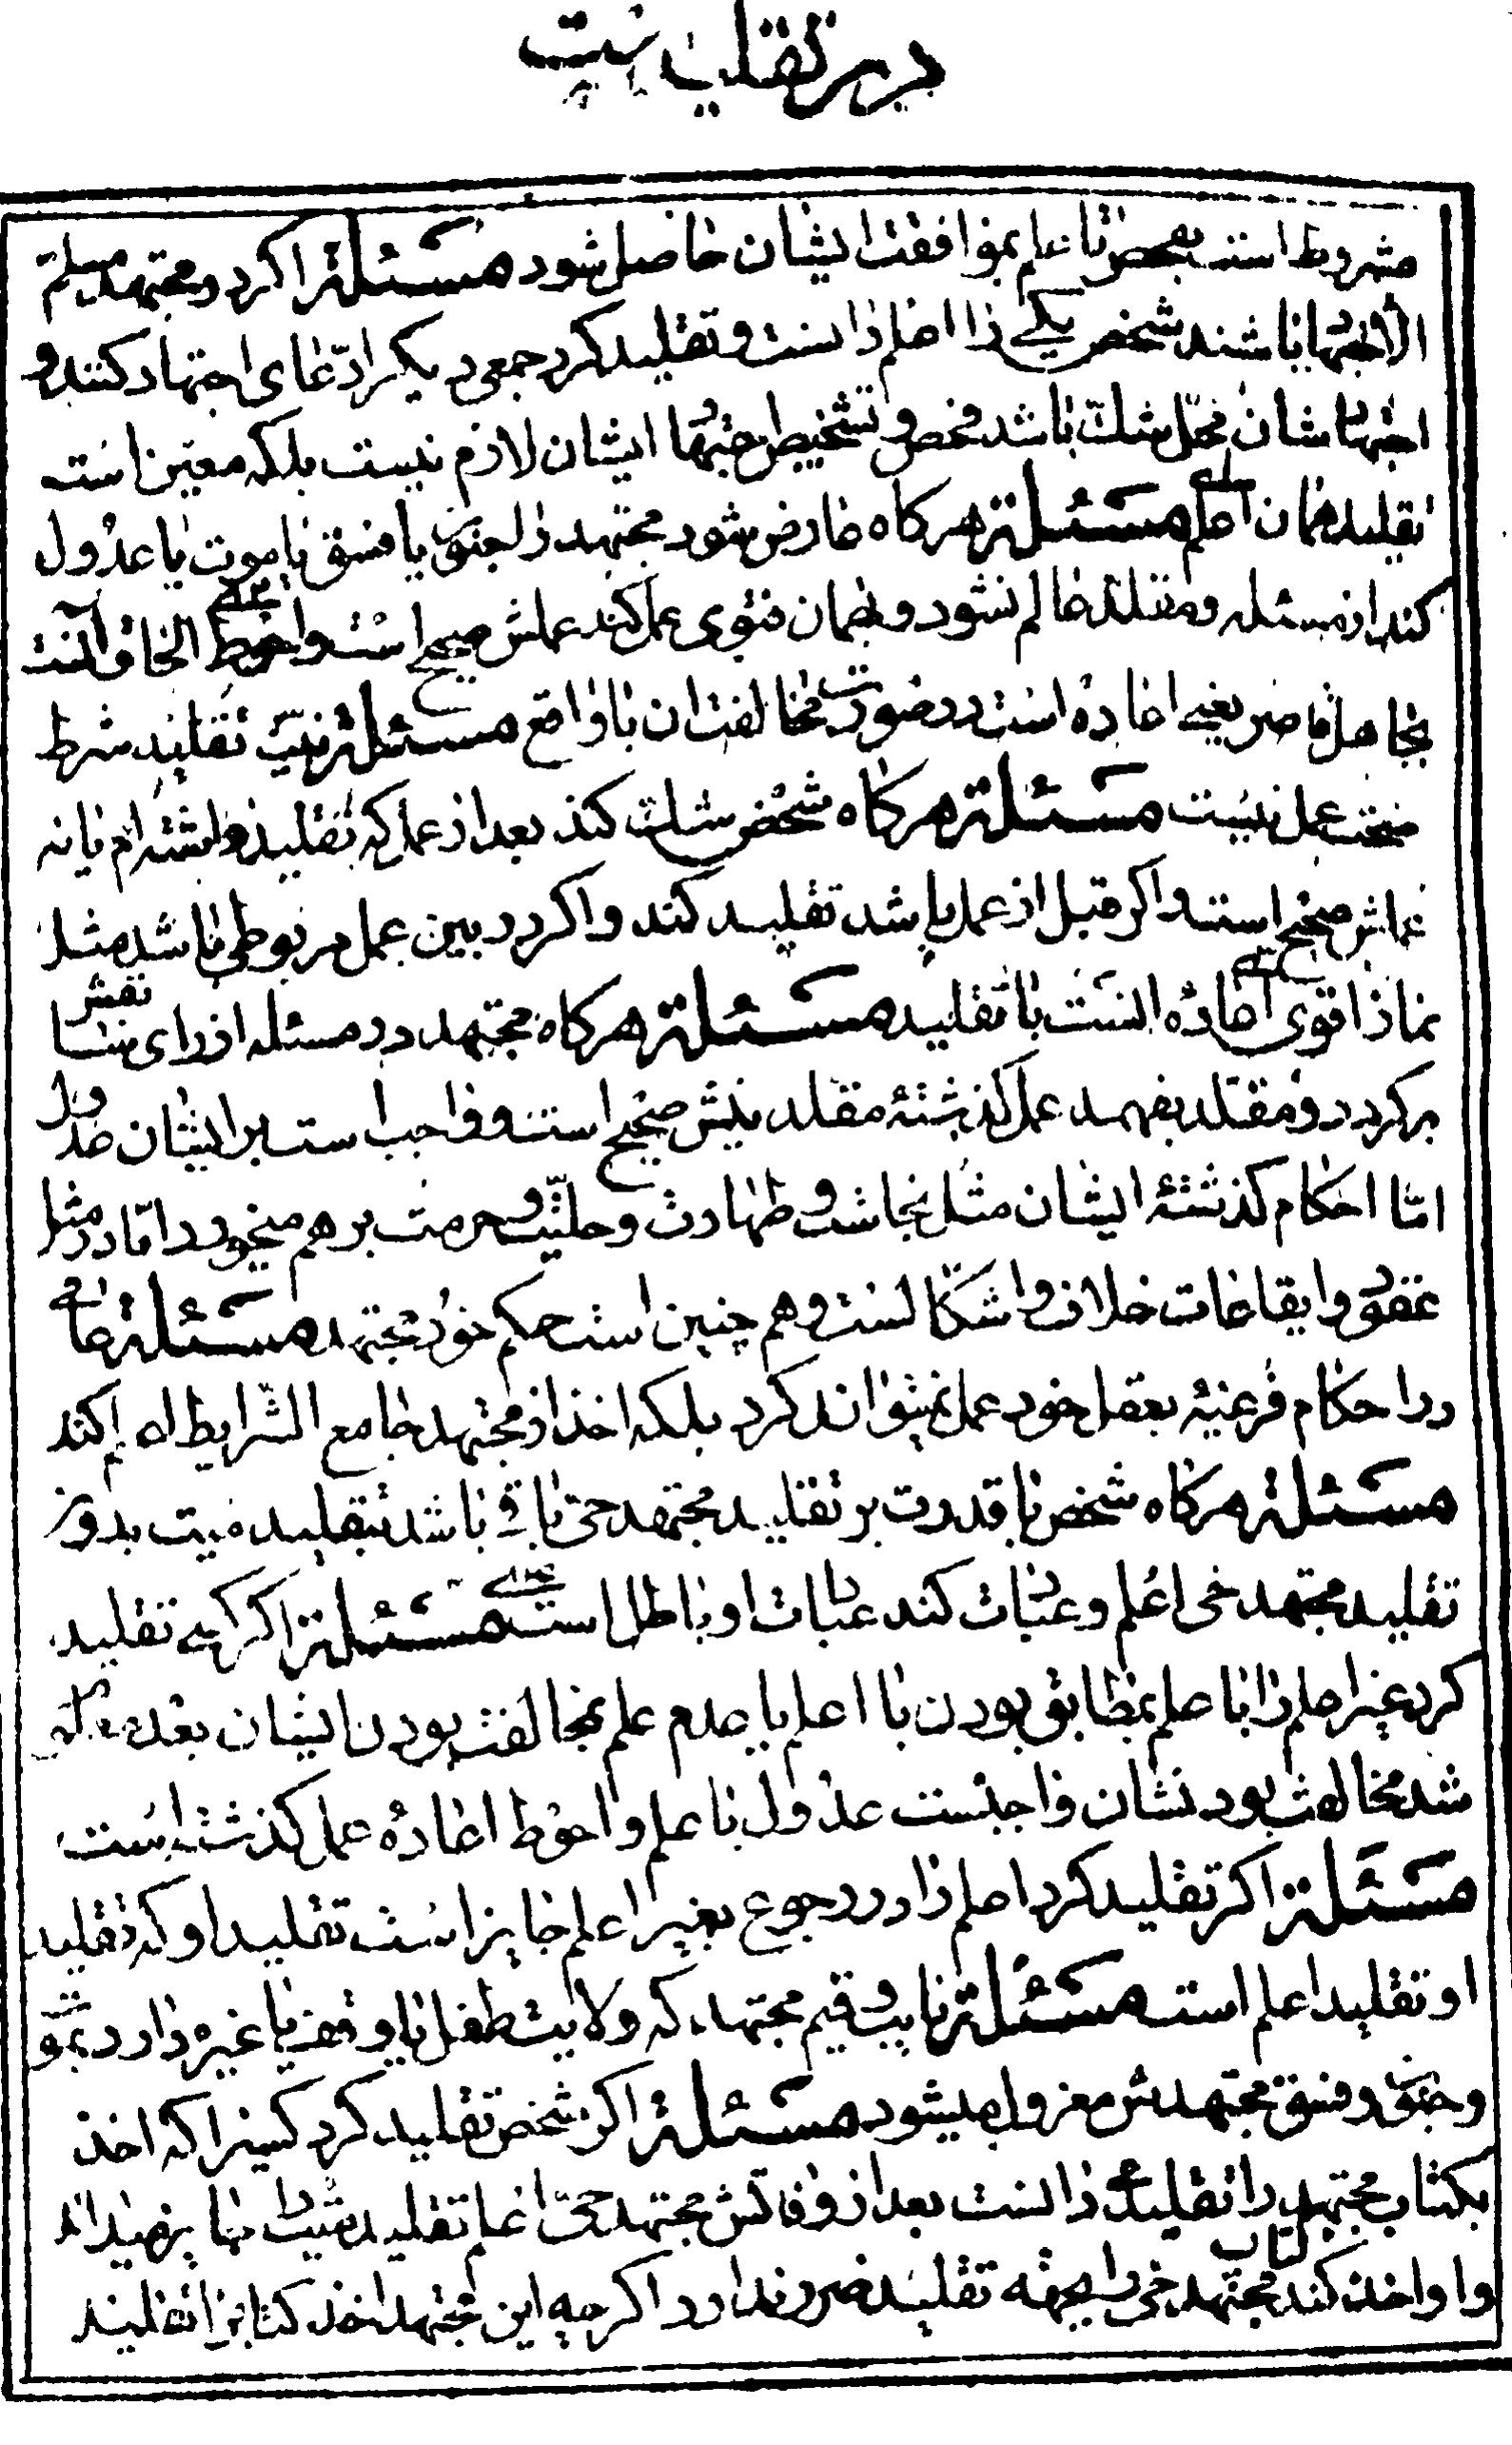 در تقلید است
مشروط است بفحص تا علم بموافقت ایشان حاصل شود مسئلة اگر دو مجتهد مسلم
الاجتهاد باشند شخص یکی را اعلم دانست و تقلید کرد جمعی دیگر ادّعای اجتهاد کنند و
اجتهادشان محلّ شک باشد فحص و تشخیص اجتهاد ایشان لازم نیست بلکه معین است
تقلید همان اعلم مسئلة هرگاه عارض شود مجتهد را جنون یا فسق یا موت یا عدول
کند از مسئله و مقلد عالم نشود و بهمان فتوی عمل کند عملش صحیح است و احوط الحاق آنست
بجاهل قاصر یعنی اعاده است در صورت مخالفت ان با واقع مسئلة نیّت تقلید شرط
صحت عمل نیست مسئلة هرگاه شخص شک کند بعد از عمل که تقلید داشته‌ام یا نه
عملش صحیح است و اگر قبل از عمل باشد تقلید کند و اگر در بین عمل مربوطی باشد مثل
نماز اقوی اعادۀ انست با تقلید مسئلة هرگاه مجتهد در مسئله از رای نفسش
برگردد و مقلد بفهمد عمل گذشتۀ مقلدینش صحیح است و واجب است بر ایشان عدول
امّا احکام گذشتۀ ایشان مثل نجاست و طهارت و حلیّت و حرمت بر هم میخورد و امّا در مثل
عقود و ایقاعات خلاف و اشکالست و هم چنین است حکم خود مجتهد مسئلة عامی
در احکام فرعیّه بعقل خود عمل نمیتواند کرد بلکه اخذ از مجتهد جامع الشّرایط اعلم کند
مسئلة هرگاه شخص با قدرت بر تقلید مجتهد حی باقی باشد بتقلید میت بدون
تقلید مجتهد حی اعلم و عبادت کند عبادات او باطل است مسئلة اگر کسی تقلید
کرد غیر اعلم را با علم بمطابق بودن با اعلم یا عدم علم بمخالفت بودن ایشان بعد
شد مخالفت بودنشان واجبست عدول با علم و احوط اعادۀ عمل گذشته است
مسئلة اگر تقلید کرد اعلم را در رجوع بغیر اعلم جایز است تقلید او که تقلید
او تقلید اعلم است مسئلة نایب و قیم مجتهد که ولایت طفل یا وقف یا غیره دارد بموت
و جنون و فسق مجتهدش معزول میشود مسئلة اگر شخص تقلید کرد کسیرا که اخذ
بکتاب مجتهد را تقلید دانست بعد از وفاتش مجتهد حیّ اعلم تقلید میّت را جایز میداند
و او اخذ کند کتاب مجتهد حی را بجهة تقلید ضرر ندارد اگر چه این مجتهد اخذ کتاب را تقلید